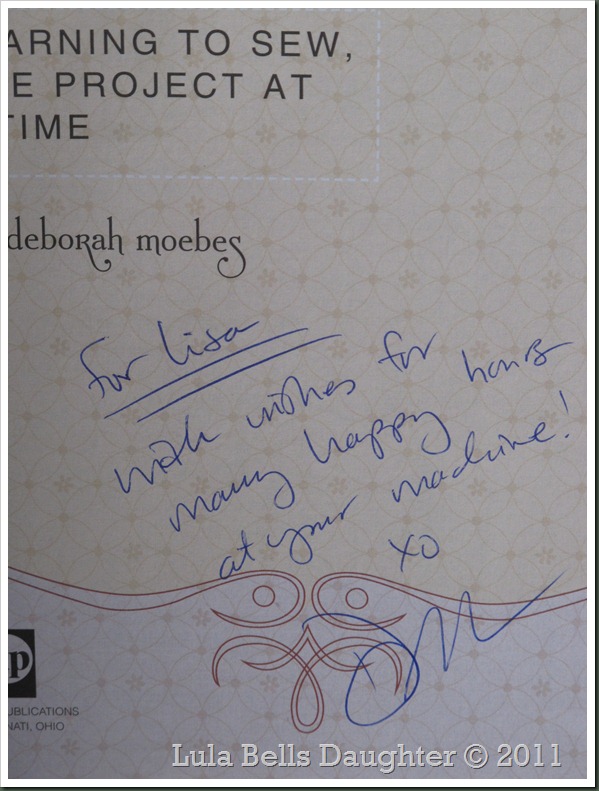 ARNING TO SEW,
E PROJECT AT
TIME
deborah moebes
For Lisa
with wishes for
many happy hours
at your machine!
XO
p
UBLICATIONS
NATI, OHIO
Lula Bells Daughter © 2011